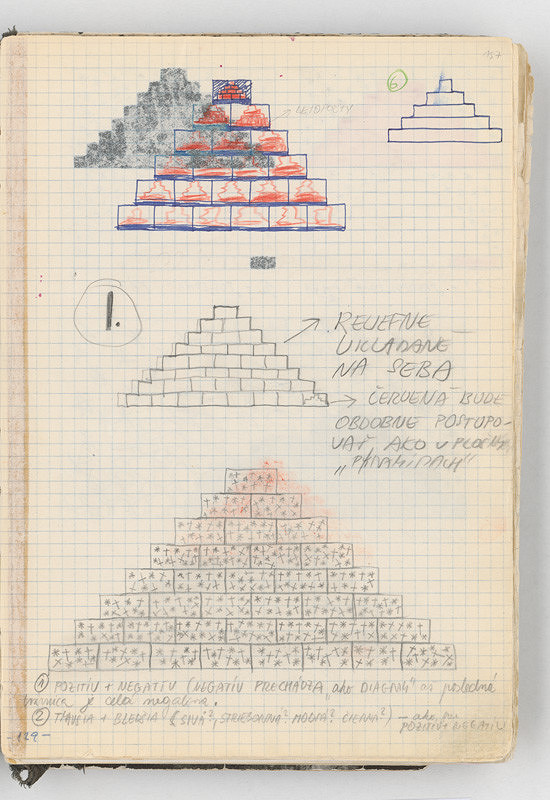 157
6
LEIDPOTIV
1.
RELIEFNE
UKLADANÉ
NA SEBA
ČERVENÁ BUDE
OBDOBNE POSTUPO-
VAŤ AKO V PLOCHÝCH
„PYRAMÍDACH“
1 POZITÍV + NEGATÍV (NEGATÍV PRECHÁDZA ako DIAGNÁL až posledná
je celá negatívna.
2 TMAVŠIA + BLEDŠIA (SIVÁ?, STRIEBORNÁ? MODRÁ? ČIERNA?) – ako pri
POZITÍV + NEGATÍV
-129-